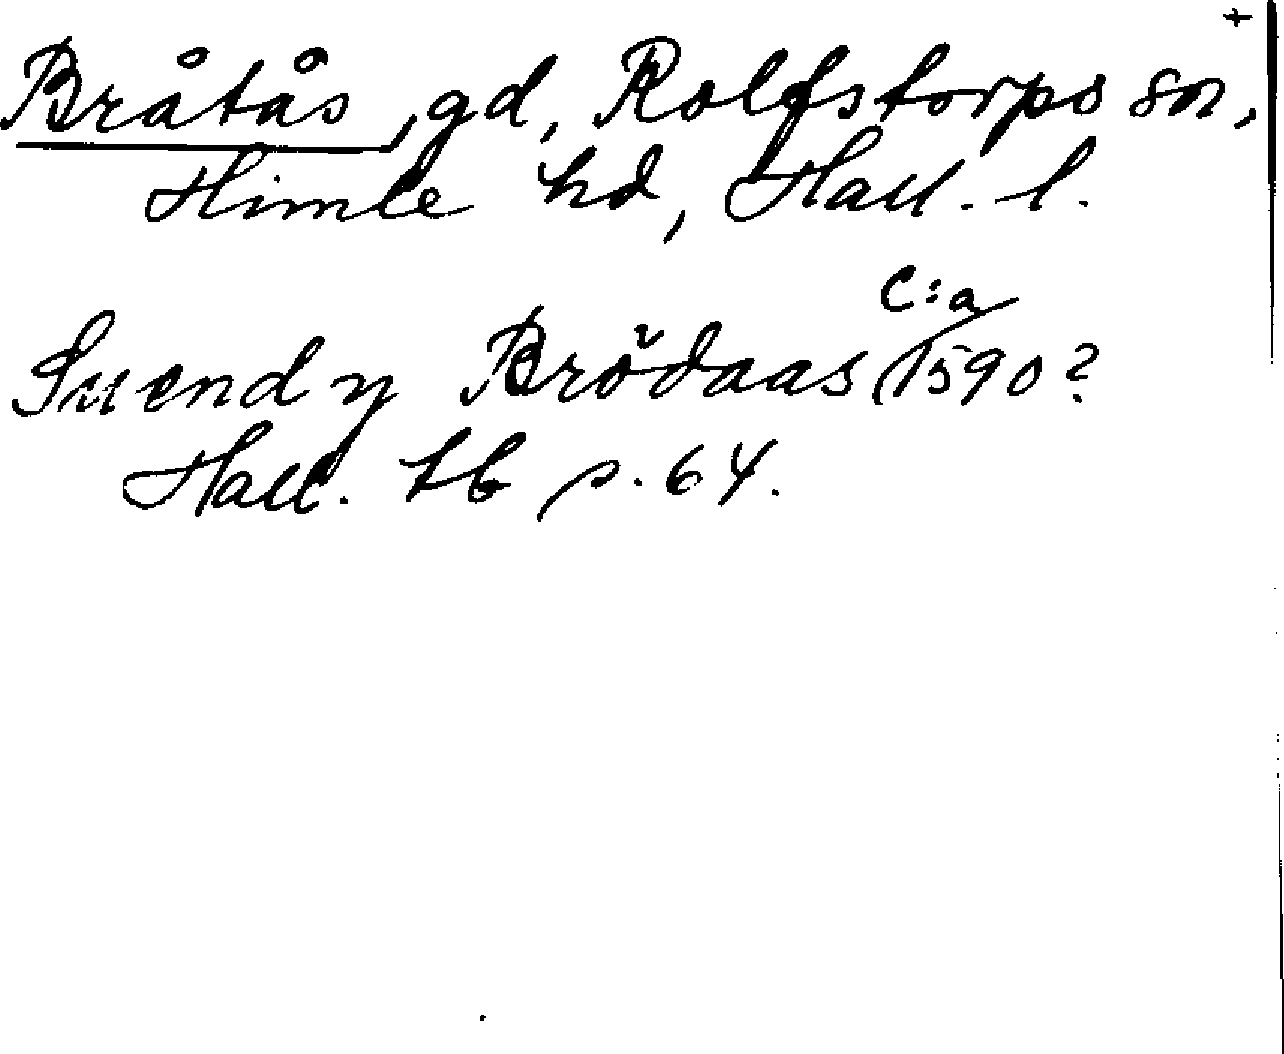 +
Bråtås, gd, Rolfstorps sn,
Himle hd, Hall. l.
C:a
Suend y Brödaas 1590?
Hall. Lb s. 64.